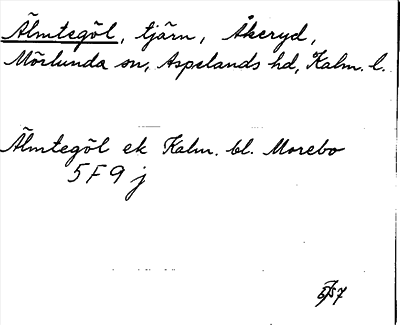 Älmtegöl, tjärn, Åkeryd,
Mörlunda sn, Aspelands hd, Kalm. l.
Älmtegöl ek Kalm. bl. Morebo
5F9j